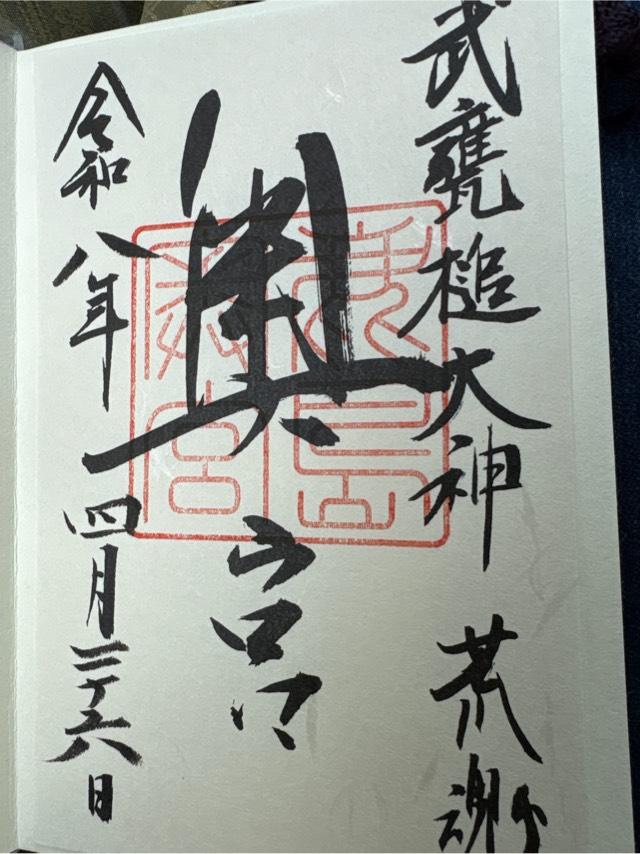 武甕槌大神 荒魂
奥宮
令和八年四月二十六日